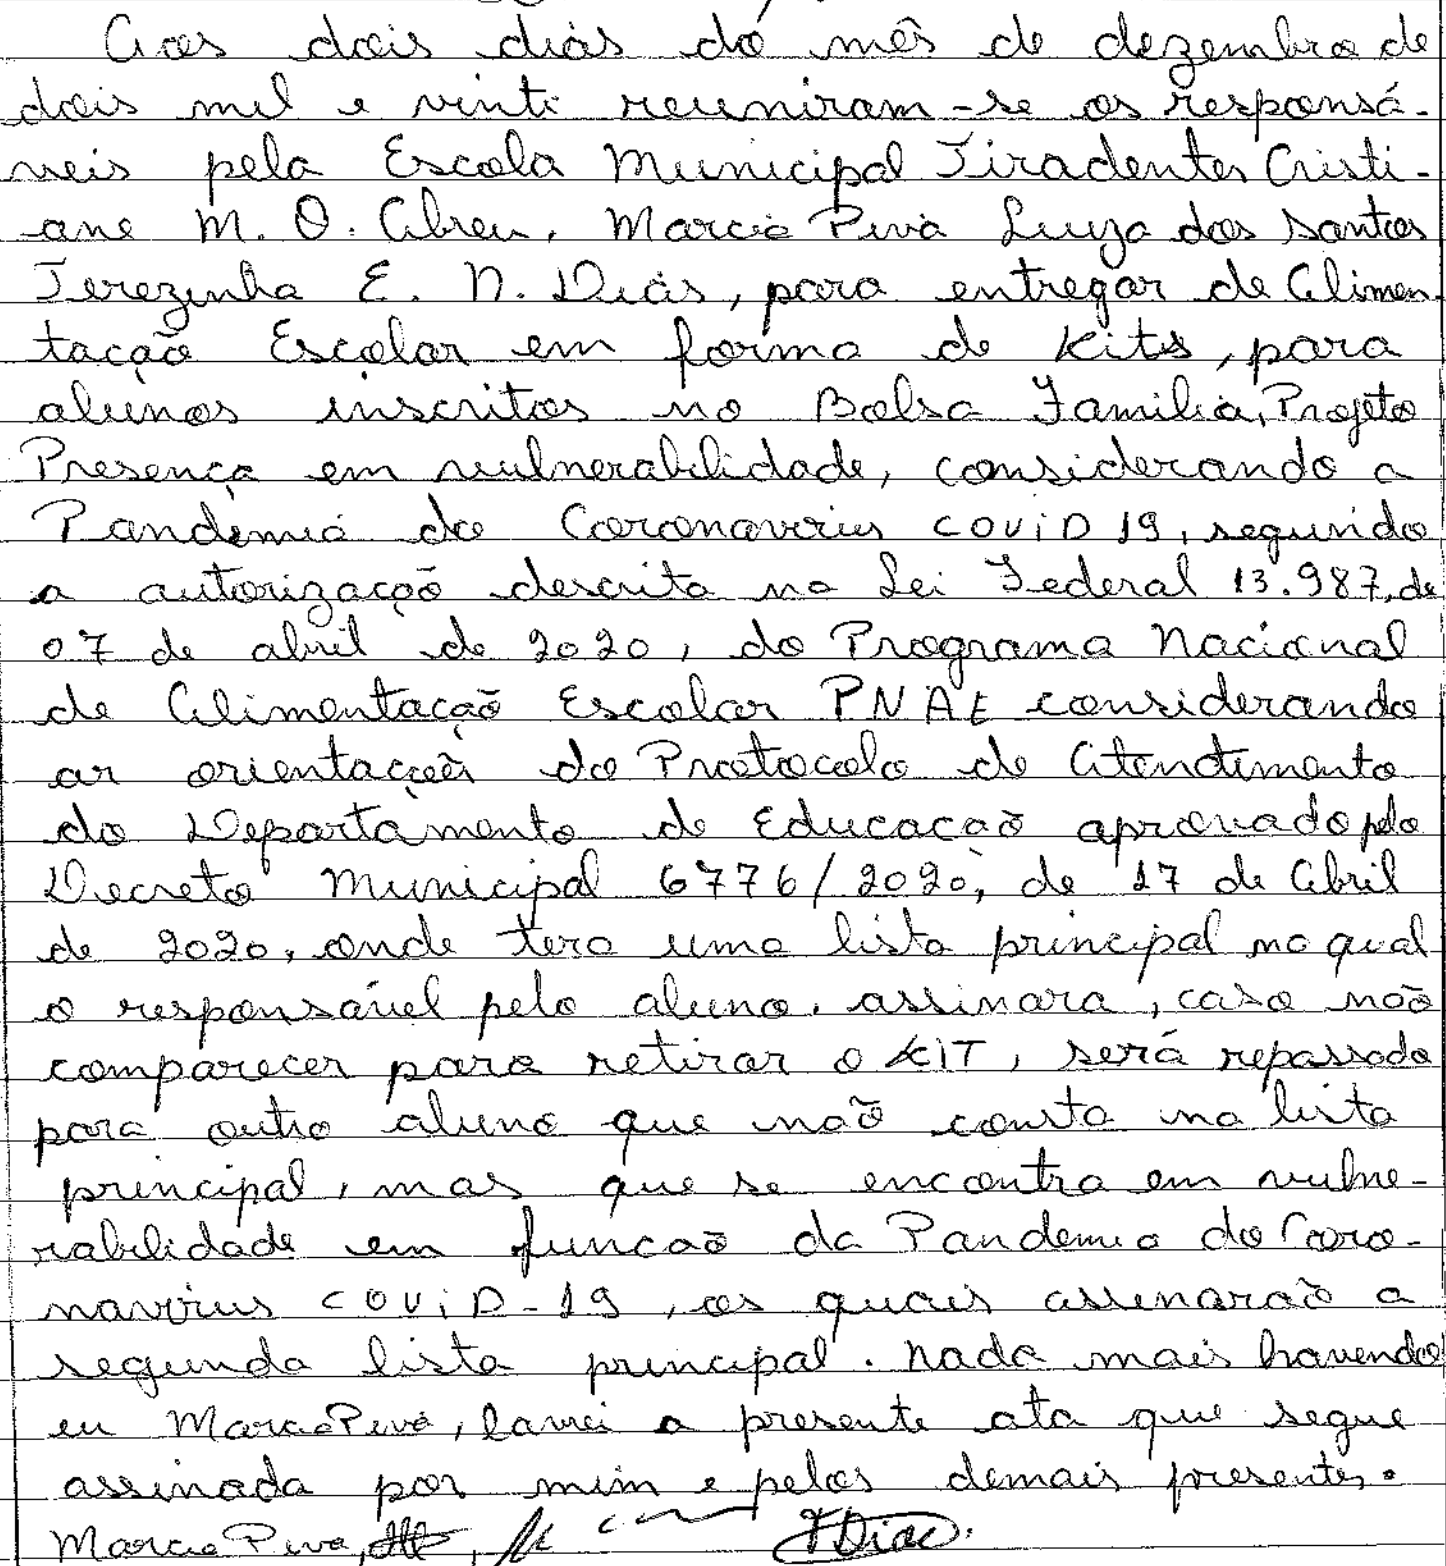 Aos dois dias do mês de dezembro de
dois mil e vinte reuniram-se os responsá-
veis pela Escola Municipal Tiradentes Cristi-
ane M. O. Abreu, Marcia Piva Luiza dos Santos
Terezinha E. N. Dias, para entregar de Alimen-
tação Escolar em forma de Kits, para
alunos inscritos no Bolsa Família, Projeto
Presença em vulnerabilidade, considerando a
Pandemia do Coronavirius COViD 19, segundo
a autorização descrita na Lei Federal 13.987, de
07 de abril de 2020, do Programa Nacional
de Alimentação Escolar PNAE considerando
as orientações do Protocolo de Atendimento
do Departamento de Educação aprovado pelo
Decreto Municipal 6776/2020, de 17 de Abril
de 2020, onde tera uma lista principal no qual
o responsável pelo aluno, assinara, caso não
comparecer para retirar o KIT, será repassado
para outro aluno que não consta na lista
principal, mas que se encontra em vulne-
rabilidade em funcão da Pandemia do Coro-
navirus COViD-19, os quais assinarão a
segunda lista principal. Nada mais havendo
eu Marcia Piva, lavrei a presente ata que segue
assinada por mim e pelos demais presentes.
Marcia Piva, Dias.